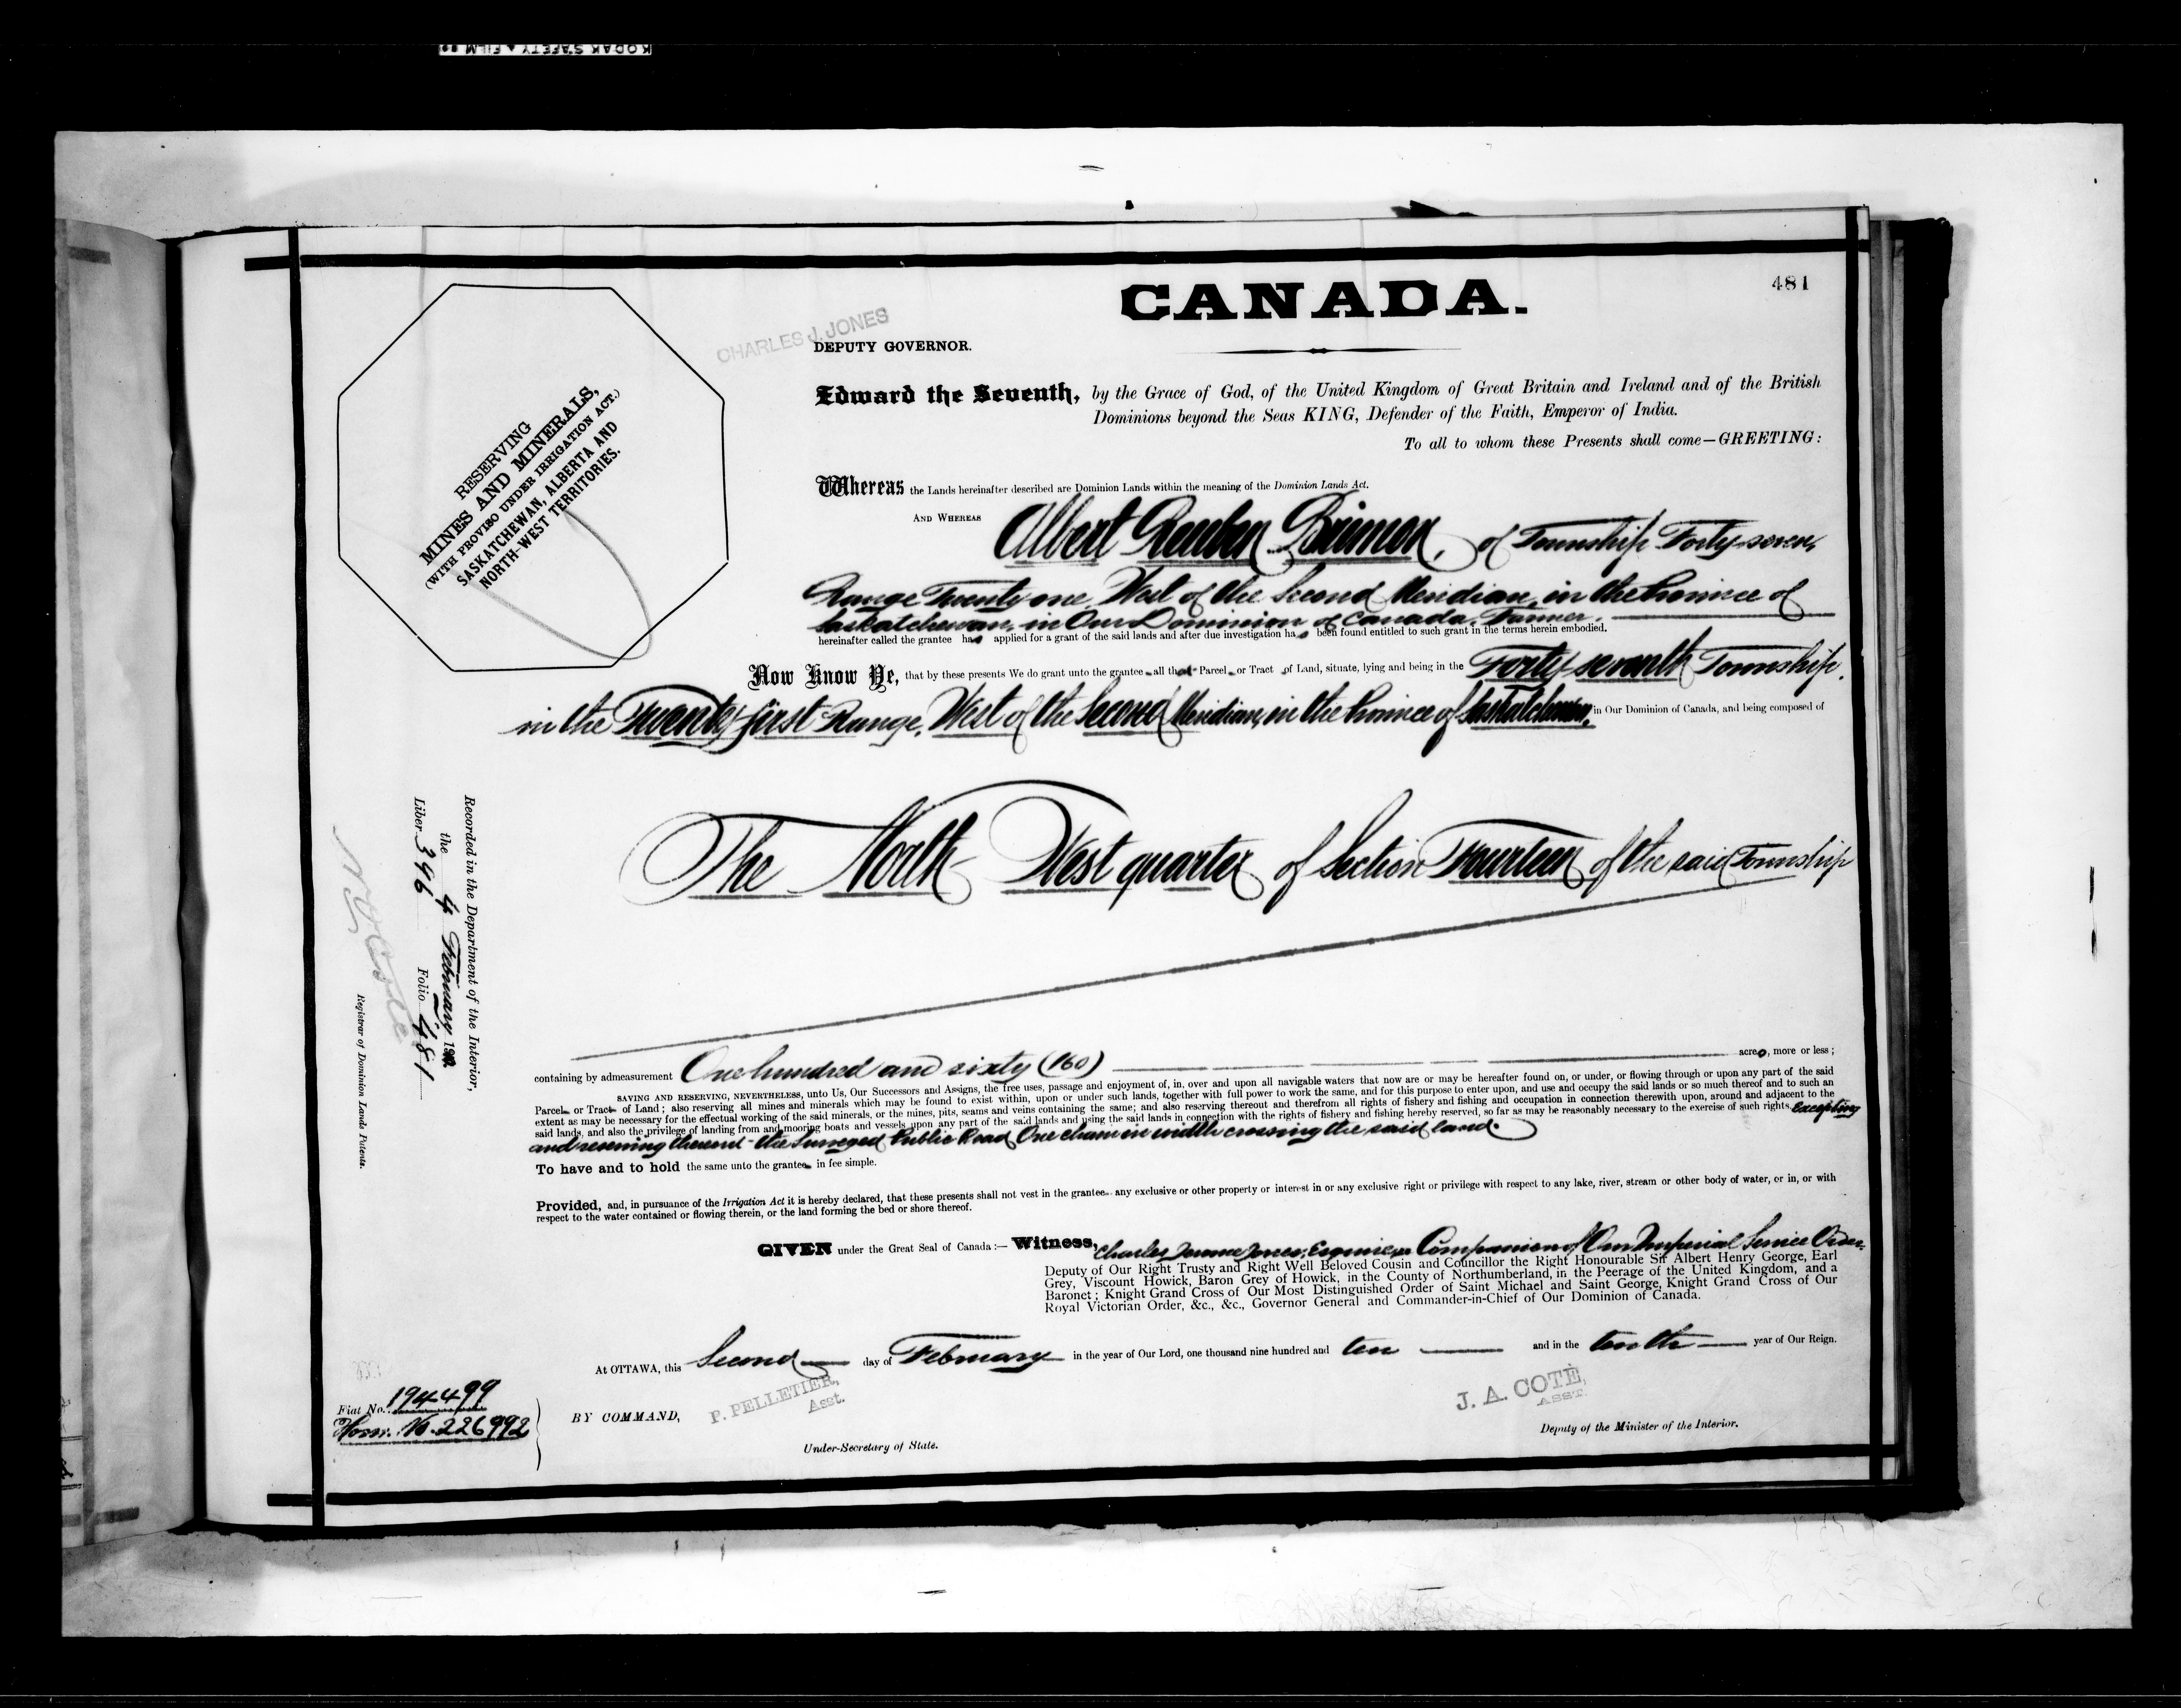 KODAK SAFETY FILM
481
CANADA.
CHARLES J. JONES
DEPUTY GOVERNOR.
RESERVING
MINES AND MINERALS,
(WITH PROVISO UNDER IRRIGATION ACT.)
SASKATCHEWAN, ALBERTA AND
NORTH-WEST TERRITORIES.
Edward the Seventh, by the Grace of God, of the United Kingdom of Great Britain and Ireland and of the British
Dominions beyond the Seas KING, Defender of the Faith, Emperor of India.
To all to whom these Presents shall come—GREETING:
Whereas the Lands hereinafter described are Dominion Lands within the meaning of the Dominion Lands Act.
AND WHEREAS Albert Reuben of Township Forty-seven,
Range Twenty one West of the Second Meridian, in the Province of
Saskatchewan, in Our Dominion of Canada, Farmer,
hereinafter called the grantee has applied for a grant of the said lands and after due investigation has been found entitled to such grant in the terms herein embodied.
Now Know Ye, that by these presents We do grant unto the grantee all that Parcel or Tract of Land, situate, lying and being in the Forty-seventh Township,
in the Twenty-first Range, West of the Second Meridian, in the Province of Saskatchewan, in Our Dominion of Canada, and being composed of
The North-West quarter of Section Fourteen of the said Township
containing by admeasurement One hundred and sixty (160) acres, more or less;
SAVING AND RESERVING, NEVERTHELESS, unto Us, Our Successors and Assigns, the free uses, passage and enjoyment of, in, over and upon all navigable waters that now are or may be hereafter found on, or under, or flowing through or upon any part of the said
Parcel or Tract of Land; also reserving all mines and minerals which may be found to exist within, upon or under such lands, together with full power to work the same, and for this purpose to enter upon, and use and occupy the said lands or so much thereof and to such an
extent as may be necessary for the effectual working of the said minerals, or the mines, pits, seams and veins containing the same; and also reserving thereout and therefrom all rights of fishery and fishing and occupation in connection therewith upon, around and adjacent to the
said lands, and also the privilege of landing from and mooring boats and vessels upon any part of the said lands and using the said lands in connection with the rights of fishery and fishing hereby reserved, so far as may be reasonably necessary to the exercise of such rights. Excepting
and reserving thereout the Surveyed Public Road One chain in width crossing the said land.
To have and to hold the same unto the grantee in fee simple.
Provided, and, in pursuance of the Irrigation Act it is hereby declared, that these presents shall not vest in the grantee any exclusive or other property or interest in or any exclusive right or privilege with respect to any lake, river, stream or other body of water, or in, or with
respect to the water contained or flowing therein, or the land forming the bed or shore thereof.
GIVEN under the Great Seal of Canada:— Witness, Charles Jerome Jones, Esquire, a Companion of Our Imperial Service Order,
Deputy of Our Right Trusty and Right Well Beloved Cousin and Councillor the Right Honourable Sir Albert Henry George, Earl
Grey, Viscount Howick, Baron Grey of Howick, in the County of Northumberland, in the Peerage of the United Kingdom, and a
Baronet; Knight Grand Cross of Our Most Distinguished Order of Saint Michael and Saint George, Knight Grand Cross of Our
Royal Victorian Order, &c., &c., Governor General and Commander-in-Chief of Our Dominion of Canada.
At OTTAWA, this Second day of February in the year of Our Lord, one thousand nine hundred and ten and in the tenth year of Our Reign.
BY COMMAND, P. PELLETIER,
Asst.
Under-Secretary of State.
J. A. COTÉ,
ASST.
Deputy of the Minister of the Interior.
Fiat No. 194499
Hom. No. 226992
Recorded in the Department of the Interior,
the 4 February
Liber 396 Folio 481
Registrar of Dominion Lands Patents.